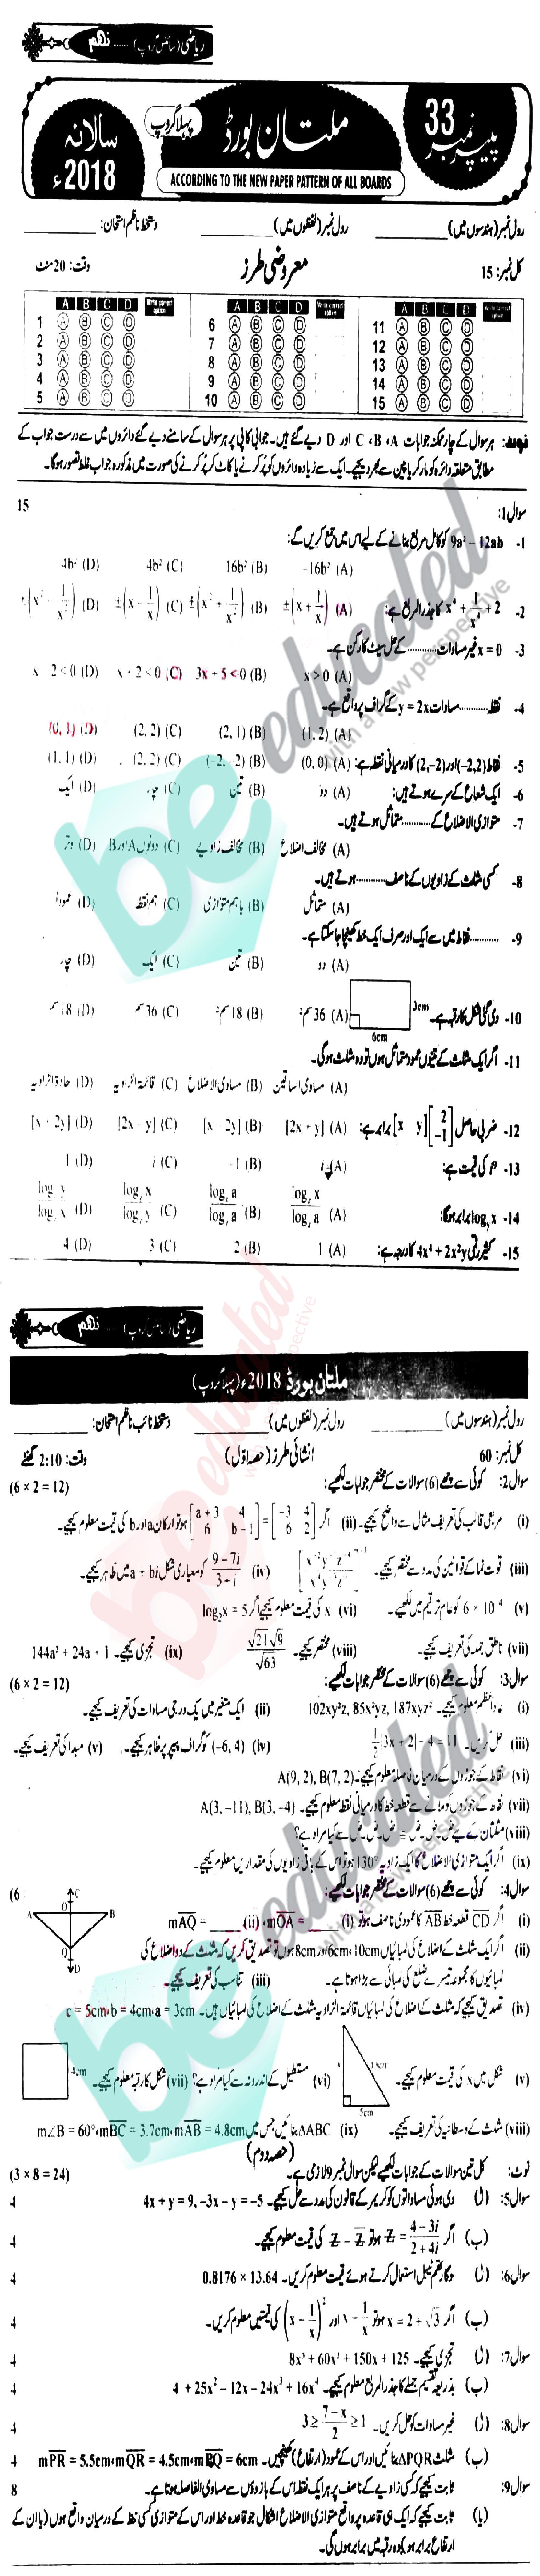 ریاضی (سائنس گروپ) ...... نہم
پیپر نمبر 33
ملتان بورڈ
پہلا گروپ
سالانہ 2018ء
ACCORDING TO THE NEW PAPER PATTERN OF ALL BOARDS
رول نمبر (ہندسوں میں) ________ رول نمبر (لفظوں میں) ________ دستخط ناظم امتحان: ________
کل نمبر: 15 معروضی طرز وقت: 20 منٹ
A B C D Write correct option A B C D Write correct option A B C D Write correct option
1 A B C D 6 A B C D 11 A B C D
2 A B C D 7 A B C D 12 A B C D
3 A B C D 8 A B C D 13 A B C D
4 A B C D 9 A B C D 14 A B C D
5 A B C D 10 A B C D 15 A B C D
نوٹ: ہر سوال کے چار ممکنہ جوابات C ، B ، A اور D دیے گئے ہیں۔ جوابی کاپی پر ہر سوال کے سامنے دیے گئے دائروں میں سے درست جواب کے
مطابق متعلقہ دائرہ کو مارکر یا پین سے بھر دیجیے۔ ایک سے زیادہ دائروں کو پُر کرنے یا کاٹ کر پُر کرنے کی صورت میں مذکورہ جواب غلط تصور ہوگا۔
سوال 1: 15
1- 9a² – 12ab کو کامل مربع بنانے کے لیے اس میں جمع کریں گے:
(A) -16b² (B) 16b² (C) 4b² (D) 4b²
2- x⁴ + 1/x⁴ + 2 کا جذرالمربع ہے:
(A) ±(x + 1/x) (B) ±(x² + 1/x²) (C) ±(x – 1/x) (D) ±(x² – 1/x²)
3- x = 0 غیر مساوات ............ کے حل سیٹ کا رکن ہے۔
(A) x > 0 (B) 3x + 5 < 0 (C) x + 2 < 0 (D) x – 2 < 0
4- نقطہ ............ مساوات y = 2x کے گراف پر واقع ہے۔
(A) (1, 2) (B) (2, 1) (C) (2, 2) (D) (0, 1)
5- نقاط (-2, 2) اور (2, -2) کا درمیانی نقطہ ہے:
(A) (0, 0) (B) (-2, -2) (C) (2, 2) (D) (1, 1)
6- ایک شعاع کے سرے ہوتے ہیں:
(A) دو (B) تین (C) چار (D) ایک
7- متوازی الاضلاع کے ............ متماثل ہوتے ہیں۔
(A) مخالف اضلاع (B) مخالف زاویے (C) دونوں A اور B (D) وتر
8- کسی مثلث کے زاویوں کے ناصف ............ ہوتے ہیں۔
(A) متماثل (B) باہم متوازی (C) ہم نقطہ (D) عمودا
9- ............ نقاط میں سے ایک اور صرف ایک خط کھینچا جا سکتا ہے۔
(A) دو (B) تین (C) ایک (D) چار
10- دی گئی شکل کا رقبہ ہے۔ 3cm 6cm
(A) 36 سم² (B) 18 سم² (C) 36 سم (D) 18 سم
11- اگر ایک مثلث کے تینوں عمود متماثل ہوں تو وہ مثلث ہوگی۔
(A) متساوی الساقین (B) مساوی الاضلاع (C) قائمۃ الزاویہ (D) حادۃ الزاویہ
12- ضربی حاصل [x y] [2 -1] برابر ہے:
(A) [2x + y] (B) [x – 2y] (C) [2x – y] (D) [x + 2y]
13- کی قیمت ہے:
(A) i (B) -1 (C) i (D) 1
14- برابر ہوگا:
15- کثیر رقمی 4x⁴ + 2x²y کا درجہ ہے:
(A) 1 (B) 2 (C) 3 (D) 4
ریاضی (سائنس گروپ) ...... نہم
ملتان بورڈ 2018ء (پہلا گروپ)
رول نمبر (ہندسوں میں) ________ رول نمبر (لفظوں میں) ________ دستخط نائب ناظم امتحان: ________
کل نمبر: 60 انشائی طرز (حصہ اوّل) وقت: 2:10 گھنٹے
سوال 2: کوئی سے چھے (6) سوالات کے مختصر جوابات لکھیے: (6 × 2 = 12)
(i) مربعی قالب کی تعریف مثال سے واضح کیجیے۔ (ii) اگر [a + 3 4 / 6 b – 1] = [-3 4 / 6 2] ہو تو ارکان a اور b کی قیمت معلوم کیجیے۔
(iii) قوت نما کے قوانین کی مدد سے مختصر کیجیے۔ (iv) (9 – 7i)/(3 + i) کو معیاری شکل a + bi میں ظاہر کیجیے۔
(v) 6 × 10⁻⁴ کو عام ترقیم میں لکھیے۔ (vi) x کی قیمت معلوم کیجیے اگر log₂x = 5
(vii) ناطق جملہ کی تعریف کیجیے۔ (viii) مختصر کیجیے۔ √21 √9 / √63 (ix) تجزی کیجیے۔ 144a² + 24a + 1
سوال 3: کوئی سے چھے (6) سوالات کے مختصر جوابات لکھیے: (6 × 2 = 12)
(i) عاد اعظم معلوم کیجیے۔ 102xy²z, 85x²yz, 187xyz² (ii) ایک متغیر میں یک درجی مساوات کی تعریف کیجیے۔
(iii) حل کریں۔ ½|3x + 2| – 4 = 11 (iv) (-6, 4) کو گراف پیپر پر ظاہر کیجیے۔ (v) مبدا کی تعریف کیجیے۔
(vi) نقاط کے جوڑوں کے درمیان فاصلہ معلوم کیجیے۔ A(9, 2), B(7, 2)
(vii) نقاط کے جوڑوں کو ملانے سے قطعہ خط کا درمیانی نقطہ معلوم کیجیے۔ A(3, -11), B(3, -4)
(viii) مثلثان کے لیے ض۔ض۔ض ≅ ض۔ض۔ض سے کیا مراد ہے؟
(ix) اگر ایک متوازی الاضلاع کا ایک زاویہ 130° ہو تو اس کے باقی زاویوں کی مقداریں معلوم کیجیے۔
سوال 4: کوئی سے چھے (6) سوالات کے مختصر جوابات لکھیے: (6
(i) اگر CD قطعہ خط AB کا عمودی ناصف ہو تو (i) mOA = ____ (ii) mAQ = ____
A B C O Q D
(ii) اگر ایک مثلث کے اضلاع کی لمبائیاں 10cm، 6cm اور 8cm ہوں تو تصدیق کریں کہ مثلث کے دو اضلاع کی
لمبائیوں کا مجموعہ تیسرے ضلع کی لمبائی سے بڑا ہوتا ہے۔ (iii) تناسب کی تعریف کیجیے۔
(iv) تصدیق کیجیے کہ مثلث کے اضلاع کی لمبائیاں قائمۃ الزاویہ مثلث کے اضلاع کی لمبائیاں ہیں۔ c = 5cm، b = 4cm، a = 3cm
(v) شکل میں x کی قیمت معلوم کیجیے۔ x 13cm 5cm (vi) مستطیل کے اندرونہ سے کیا مراد ہے؟ (vii) شکل کا رقبہ معلوم کیجیے۔ 4cm
(viii) مثلث کے وسطانیہ کی تعریف کیجیے۔ (ix) ΔABC بنائیں جس میں m∠B = 60°، mBC = 3.7cm، mAB = 4.8cm
(حصہ دوم)
نوٹ: کل تین سوالات کے جوابات لکھیے لیکن سوال نمبر 9 لازمی ہے۔ (3 × 8 = 24)
سوال 5: (ا) دی ہوئی مساواتوں کو کریمر کے قانون کی مدد سے حل کیجیے۔ 4x + y = 9, -3x – y = -5 4
(ب) اگر Z = (4 – 3i)/(2 + 4i) ہو تو Z – Z̄ کی قیمت معلوم کیجیے۔ 4
سوال 6: (ا) لوگارتھم ٹیبل استعمال کرتے ہوئے قیمت معلوم کریں۔ 0.8176 × 13.64 4
(ب) اگر x = 2 + √3 ہو تو x – 1/x اور (x – 1/x)² کی قیمتیں معلوم کریں۔ 4
سوال 7: (ا) تجزی کیجیے۔ 8x³ + 60x² + 150x + 125 4
(ب) بذریعہ تقسیم جملے کا جذرالمربع معلوم کیجیے۔ 4 + 25x² – 12x – 24x³ + 16x⁴ 4
سوال 8: (ا) غیر مساوات کو حل کریں۔ 3 ≥ (7 – x)/2 ≥ 1 4
(ب) مثلث ΔPQR بنائیں اور اس کے عمود (ارتفاع) کھینچیں۔ mPR = 5.5cm، mQR = 4.5cm، mPQ = 6cm 4
سوال 9: ثابت کیجیے کہ کسی زاویے کے ناصف پر ہر ایک نقطہ اس کے بازوؤں سے مساوی الفاصلہ ہوتا ہے۔ 8
(یا) ثابت کیجیے کہ ایک ہی قاعدہ پر واقع متوازی الاضلاع اشکال جو قاعدہ خط اور اس کے متوازی کسی خط کے درمیان واقع ہوں (یا ان کے
ارتفاع برابر ہو) وہ رقبہ میں برابر ہوں گی۔
be educated
with a new perspective